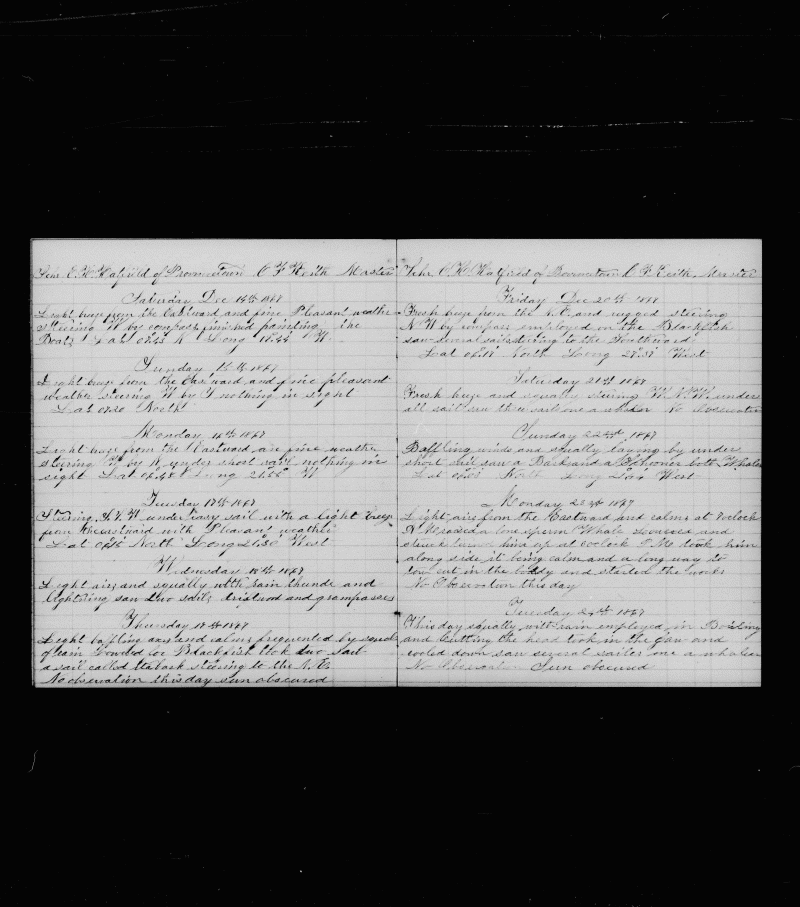 Schr E. H. Hatfield of Provincetown C F Keith Master
Saturday Dec 14th 1867
Light breeze from the Eastward and fine Pleasant weather
steering W by compass finished painting the
Boats Lat Long W
Sunday 15th 1867
Light breeze from the Eastward and fine pleasant
weather steering W by S nothing in sight
Lat North
Monday 16th 1867
Light breeze from the Eastward and fine weather
steering W by under short sail nothing in
sight Lat Long W
Tuesday 17th 1867
Steering W under easy sail with a light breeze
from the eastward with Pleasant weather
Lat North Long West
Wednesday 18th 1867
Light airs and squally with rain thunder and
lightning saw two sails and grampuses
Thursday 19th 1867
Light baffling airs and calms frequented by squalls
of rain lowered for Blackfish took two saw
a sail called steering to the
No observation this day sun obscured
Schr E. H. Hatfield of Provincetown C F Keith Master
Friday Dec 20th 1867
Fresh breeze from the N.E. and rugged steering
N W by compass employed on the Blackfish
saw several sails steering to the Southward
Lat North Long West
Saturday 21st 1867
Fresh breeze and squally steering W.N.W. under
all sail saw three sails one a whaler No Observation
Sunday 22nd 1867
Baffling winds and squally laying by under
short sail saw a Bark and a Schooner both Whalers
Lat North Long West
Monday 23rd 1867
Light airs from the Eastward and calms at 8 oclock
A M raised a lone sperm Whale lowered and
struck turned him up at oclock P.M. took him
along side it being calm and a long way to
tow cut in the body and started the works
No Observation this day
Tuesday 24th 1867
This day squally with rain employed in Boiling
and Cutting the head took in the Jaw and
cooled down saw several sailes one a whaler
No Observation Sun obscured